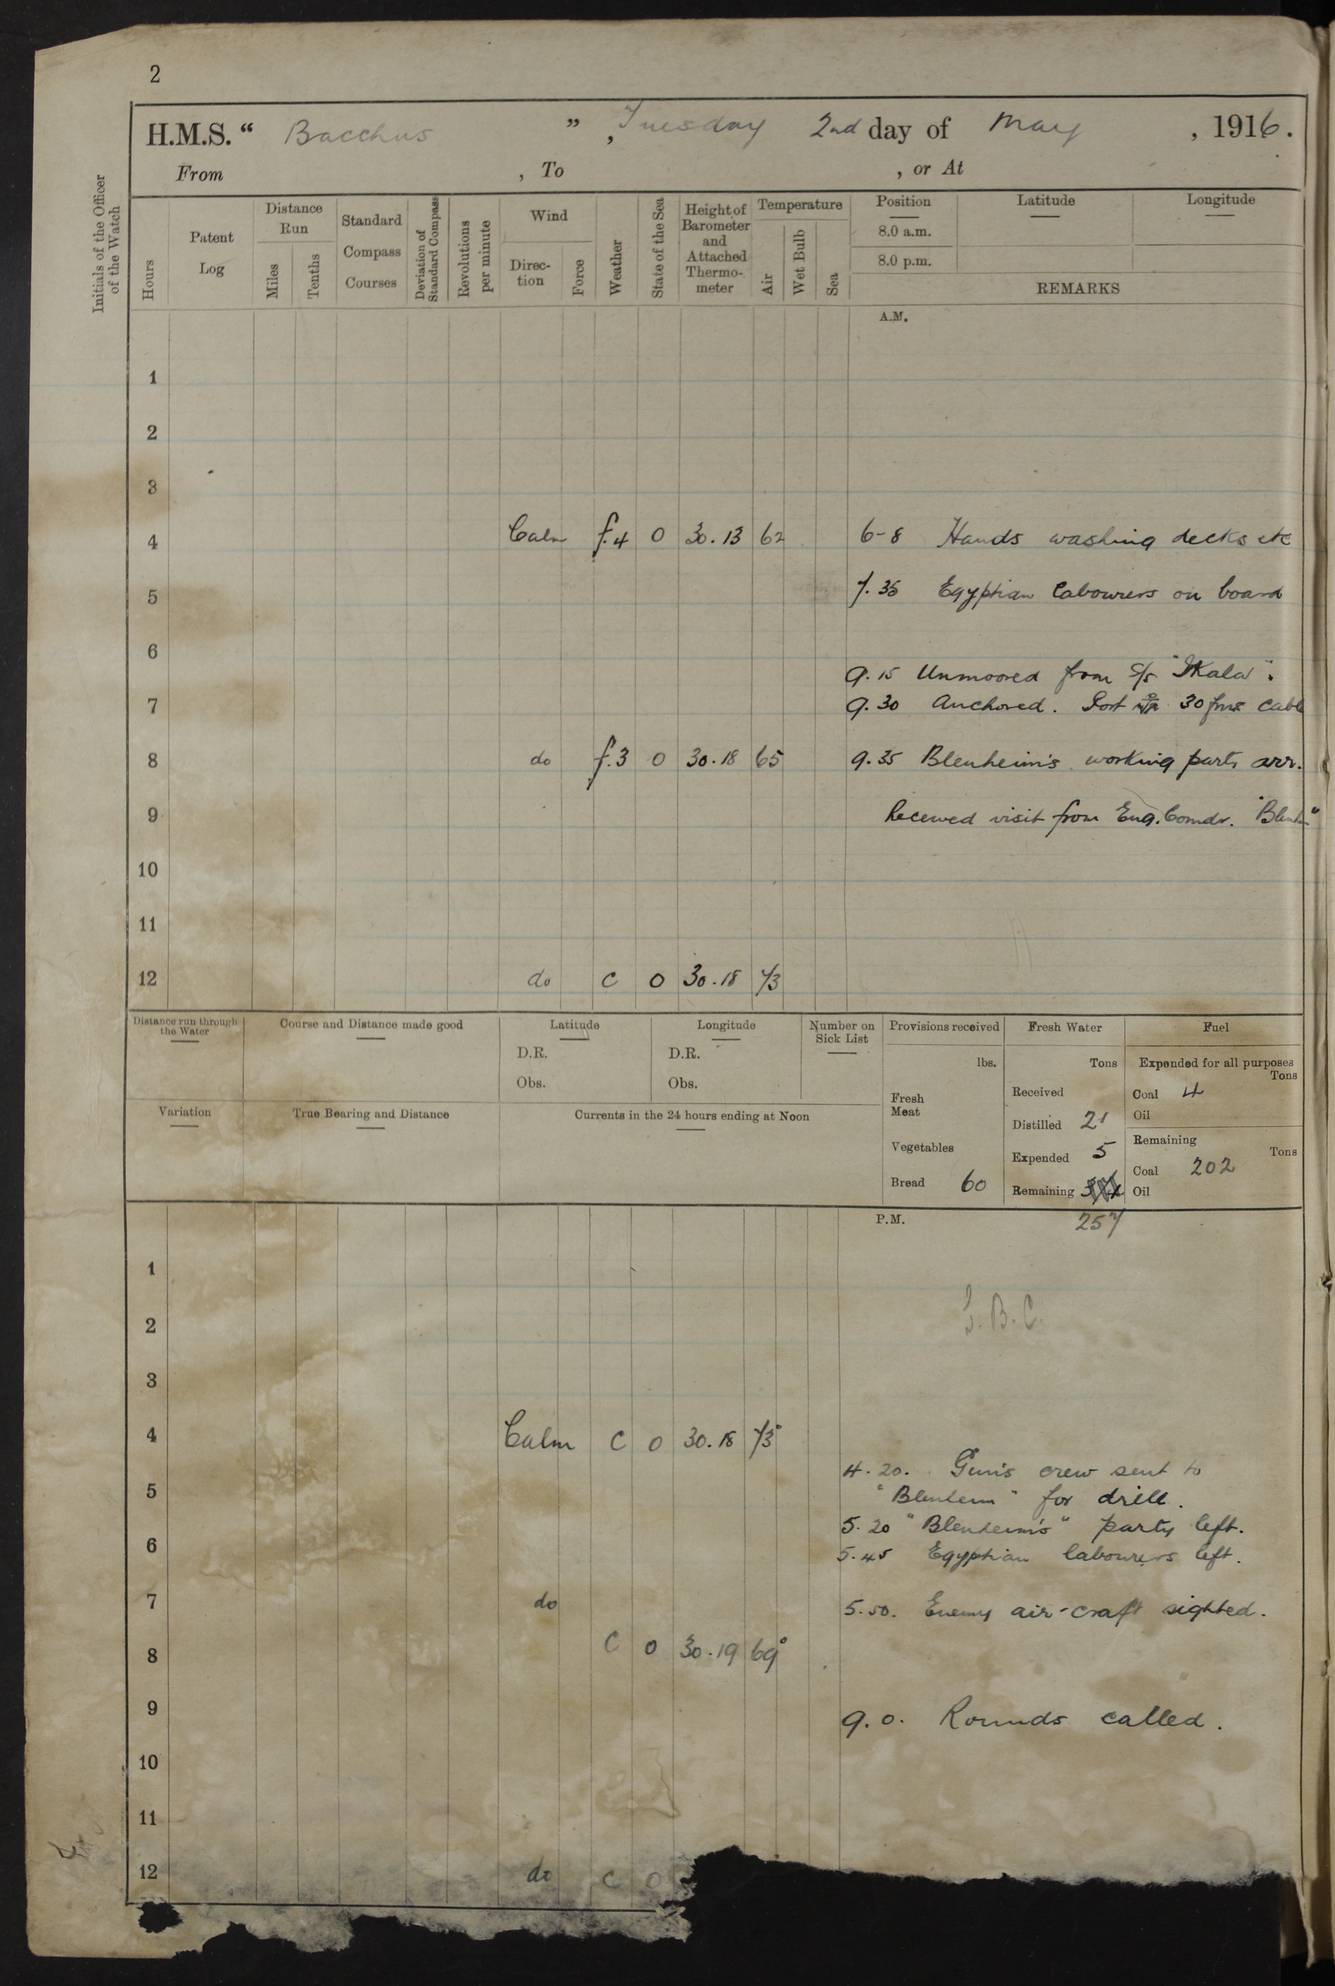 2
H.M.S. " Bacchus " , Tuesday 2nd day of May , 1916.
From , To , or At
Initials of the Officer of the Watch
Hours
Patent Log
Distance Run
Miles
Tenths
Standard Compass Courses
Deviation of Standard Compass
Revolutions per minute
Wind
Direction
Force
Weather
State of the Sea
Height of Barometer and Attached Thermo-meter
Temperature
Air
Wet Bulb
Sea
Position
8.0 a.m.
8.0 p.m.
Latitude
Longitude
REMARKS
A.M.
1
2
3
4 Calm f.4 0 30.13 62 6-8 Hands washing decks etc
5 7.35 Egyptian labourers on board
6
9.15 Unmoored from S/S "Skala".
7 9.30 Anchored. Port 30 fms cable
8 do f.3 0 30.18 65 9.35 Blenheim's working party arr.
9 Received visit from Eng. Comdr.
10
11
12 do c 0 30.18 73
Distance run through the Water
Course and Distance made good
Latitude
D.R.
Obs.
Longitude
D.R.
Obs.
Number on Sick List
Variation
True Bearing and Distance
Currents in the 24 hours ending at Noon
Provisions received
lbs.
Fresh Meat
Vegetables
Bread 60
Fresh Water
Tons
Received
Distilled 21
Expended 5
Remaining
257
Fuel
Expended for all purposes
Tons
Coal 4
Oil
Remaining
Tons
Coal 202
Oil
P.M.
1
2
3
4 Calm c 0 30.18 73°
4.20. Gun's crew sent to
5 "Blenheim" for drill.
5.20 "Blenheim's" party left.
6 5.45 Egyptian labourers left.
7 do 5.50. Enemy air-craft sighted.
8 c 0 30.19 69°
9 9.0. Rounds called.
10
11
12 do c 0